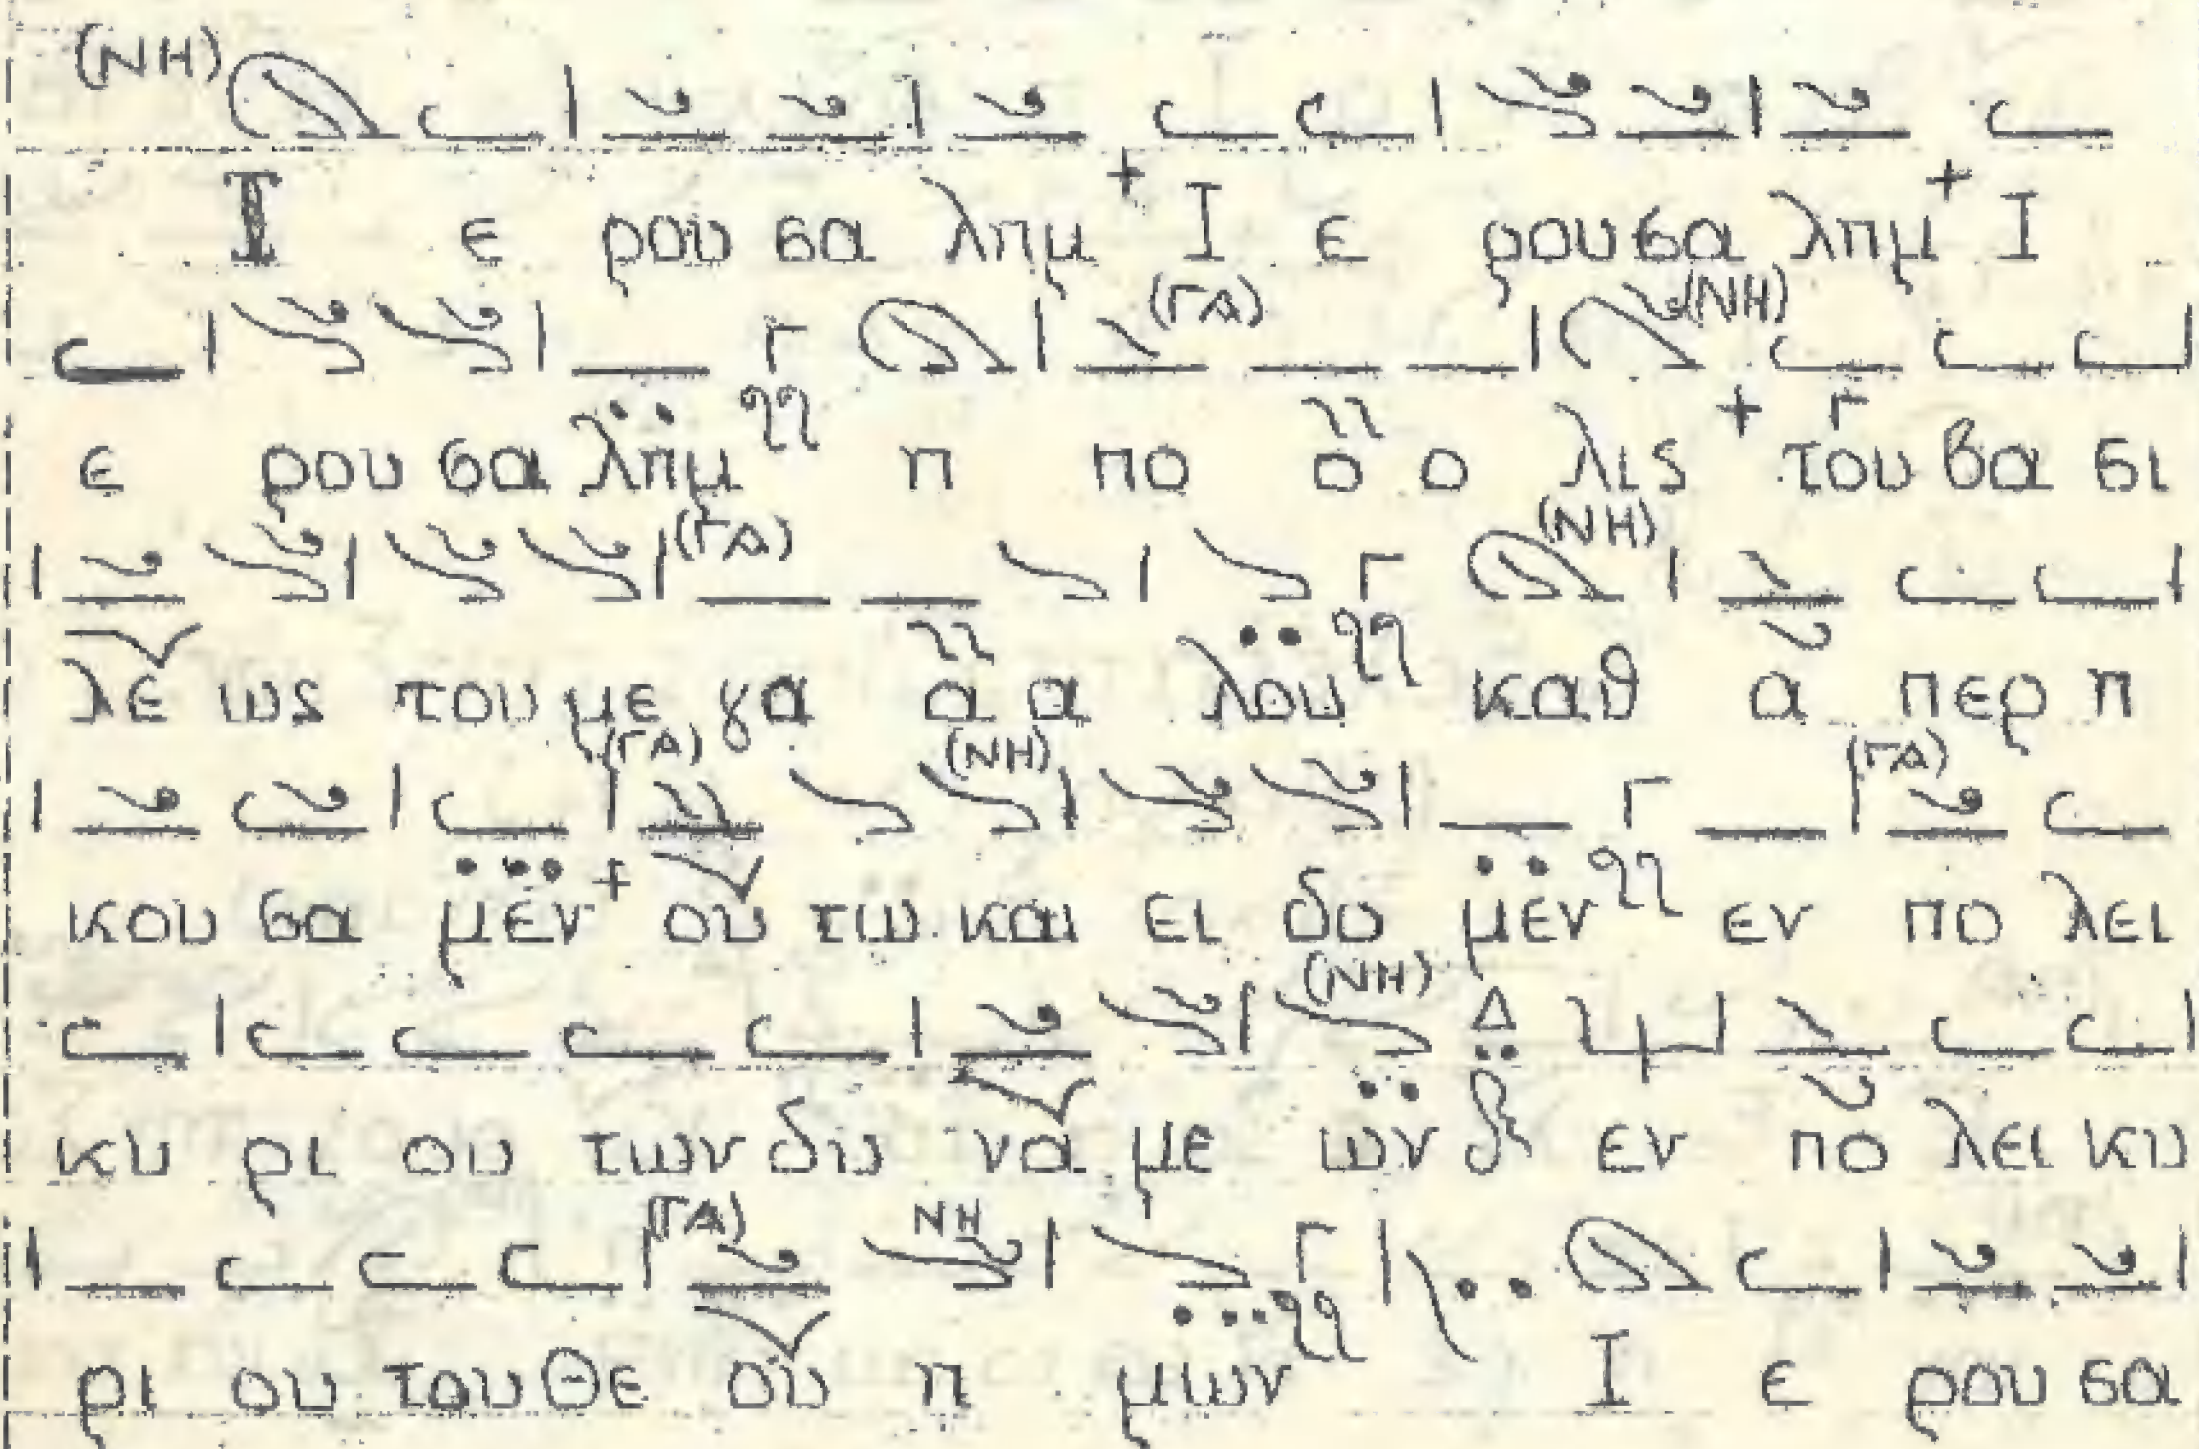 (ΝΗ)
Ι ε ρου σα λημ + Ι ε ρου σα λημ + Ι
(ΓΑ) (ΝΗ)
ε ρου σα λημ η πο ο ο λις + του βα σι
(ΓΑ) (ΝΗ)
λε ως του με γα α α λου καθ α περ η
(ΓΑ) (ΝΗ) (ΓΑ)
κου σα μεν + ου τω και ει δο μεν εν πο λει
(ΝΗ) Δ
κυ ρι ου των δυ να με ων εν πο λει κυ
(ΓΑ) ΝΗ
ρι ου του Θε ου η μων Ι ε ρου σα